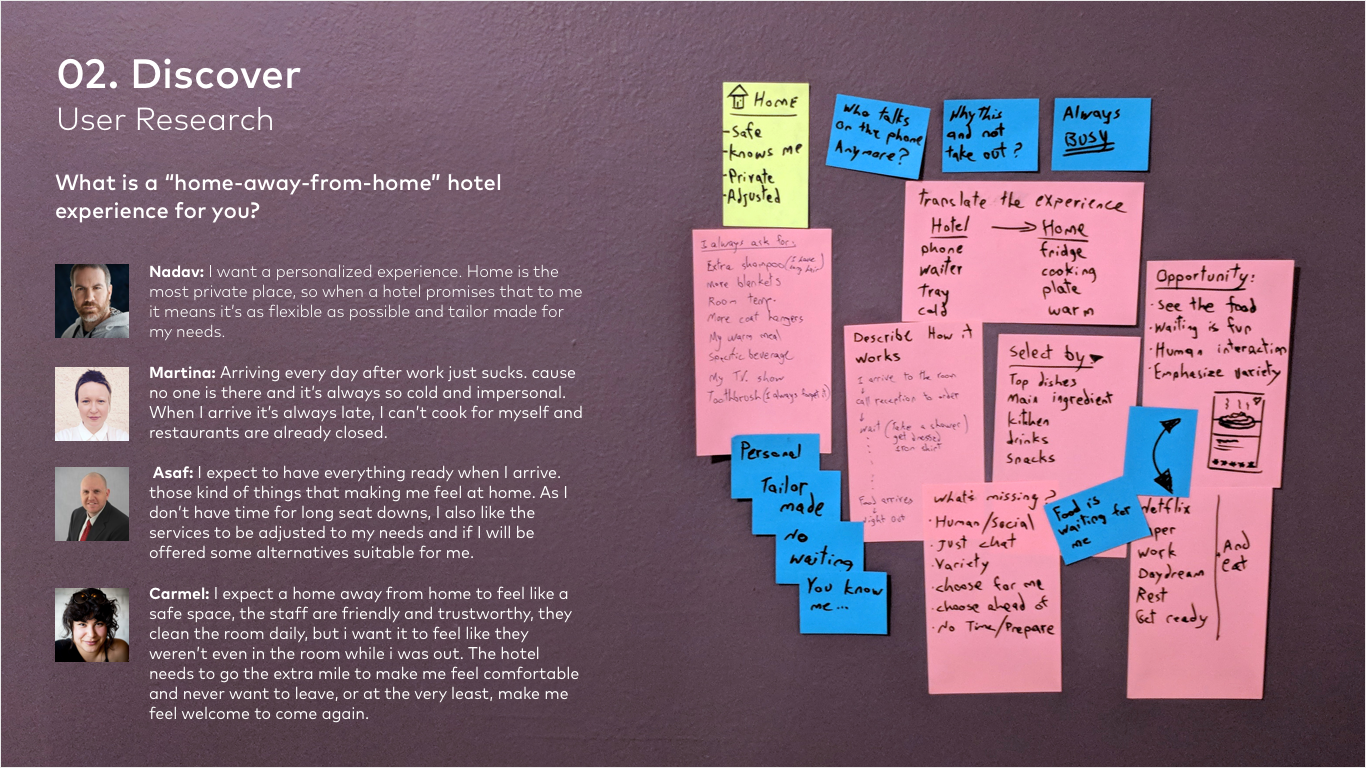 02. Discover
User Research
What is a “home-away-from-home” hotel
experience for you?
Nadav: I want a personalized experience. Home is the
most private place, so when a hotel promises that to me
it means it’s as flexible as possible and tailor made for
my needs.
Martina: Arriving every day after work just sucks. cause
no one is there and it’s always so cold and impersonal.
When I arrive it’s always late, I can’t cook for myself and
restaurants are already closed.
Asaf: I expect to have everything ready when I arrive.
those kind of things that making me feel at home. As I
don’t have time for long seat downs, I also like the
services to be adjusted to my needs and if I will be
offered some alternatives suitable for me.
Carmel: I expect a home away from home to feel like a
safe space, the staff are friendly and trustworthy, they
clean the room daily, but i want it to feel like they
weren’t even in the room while i was out. The hotel
needs to go the extra mile to make me feel comfortable
and never want to leave, or at the very least, make me
feel welcome to come again.
Home
-Safe
-knows me
-Private
-Adjusted
Who talks
on the phone
Anymore?
Why this
and not
take out?
Always
BUSY
I always ask for:
Extra shampoo (I have
my hair)
More blankets
Room temp.
More coat hangers
My warm meal
Specific beverage
My T.V. show
Toothbrush (I always forget it)
Translate the experience
Hotel
Home
phone
fridge
waiter
cooking
tray
plate
cold
warm
Opportunity:
·see the food
·waiting is fun
·Human interaction
·Emphasize variety
Describe How it
works
I arrive to the room
call reception to order
wait (Take a shower)
get dressed
iron shirt
Food arrives
Night out
Select by
Top dishes
Main ingredient
kitchen
drinks
Snacks
Personal
Tailor
made
No
waiting
You know
me...
what's missing?
·Human/social
·Just chat
·Variety
·choose for me
·choose ahead of
·No Time/Prepare
Food is
waiting for
me
Netflix
work
Daydream
Rest
Get ready
And
eat